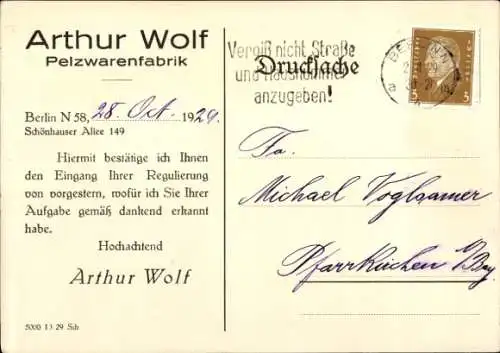 Arthur Wolf
Pelzwarenfabrik
Berlin N 58, 28. Okt. 1929.
Schönhauser Allee 149
Hiermit bestätige ich Ihnen
den Eingang Ihrer Regulierung
von vorgestern, wofür ich Sie Ihrer
Aufgabe gemäß dankend erkannt
habe.
Hochachtend
Arthur Wolf
5000 13 29 Sch
Vergiß nicht Straße
und Hausnummer
anzugeben!
Drucksache
BERLIN
a
3 3
Fa.
Michael Voglgsamer
Pfarrkirchen
Bay.